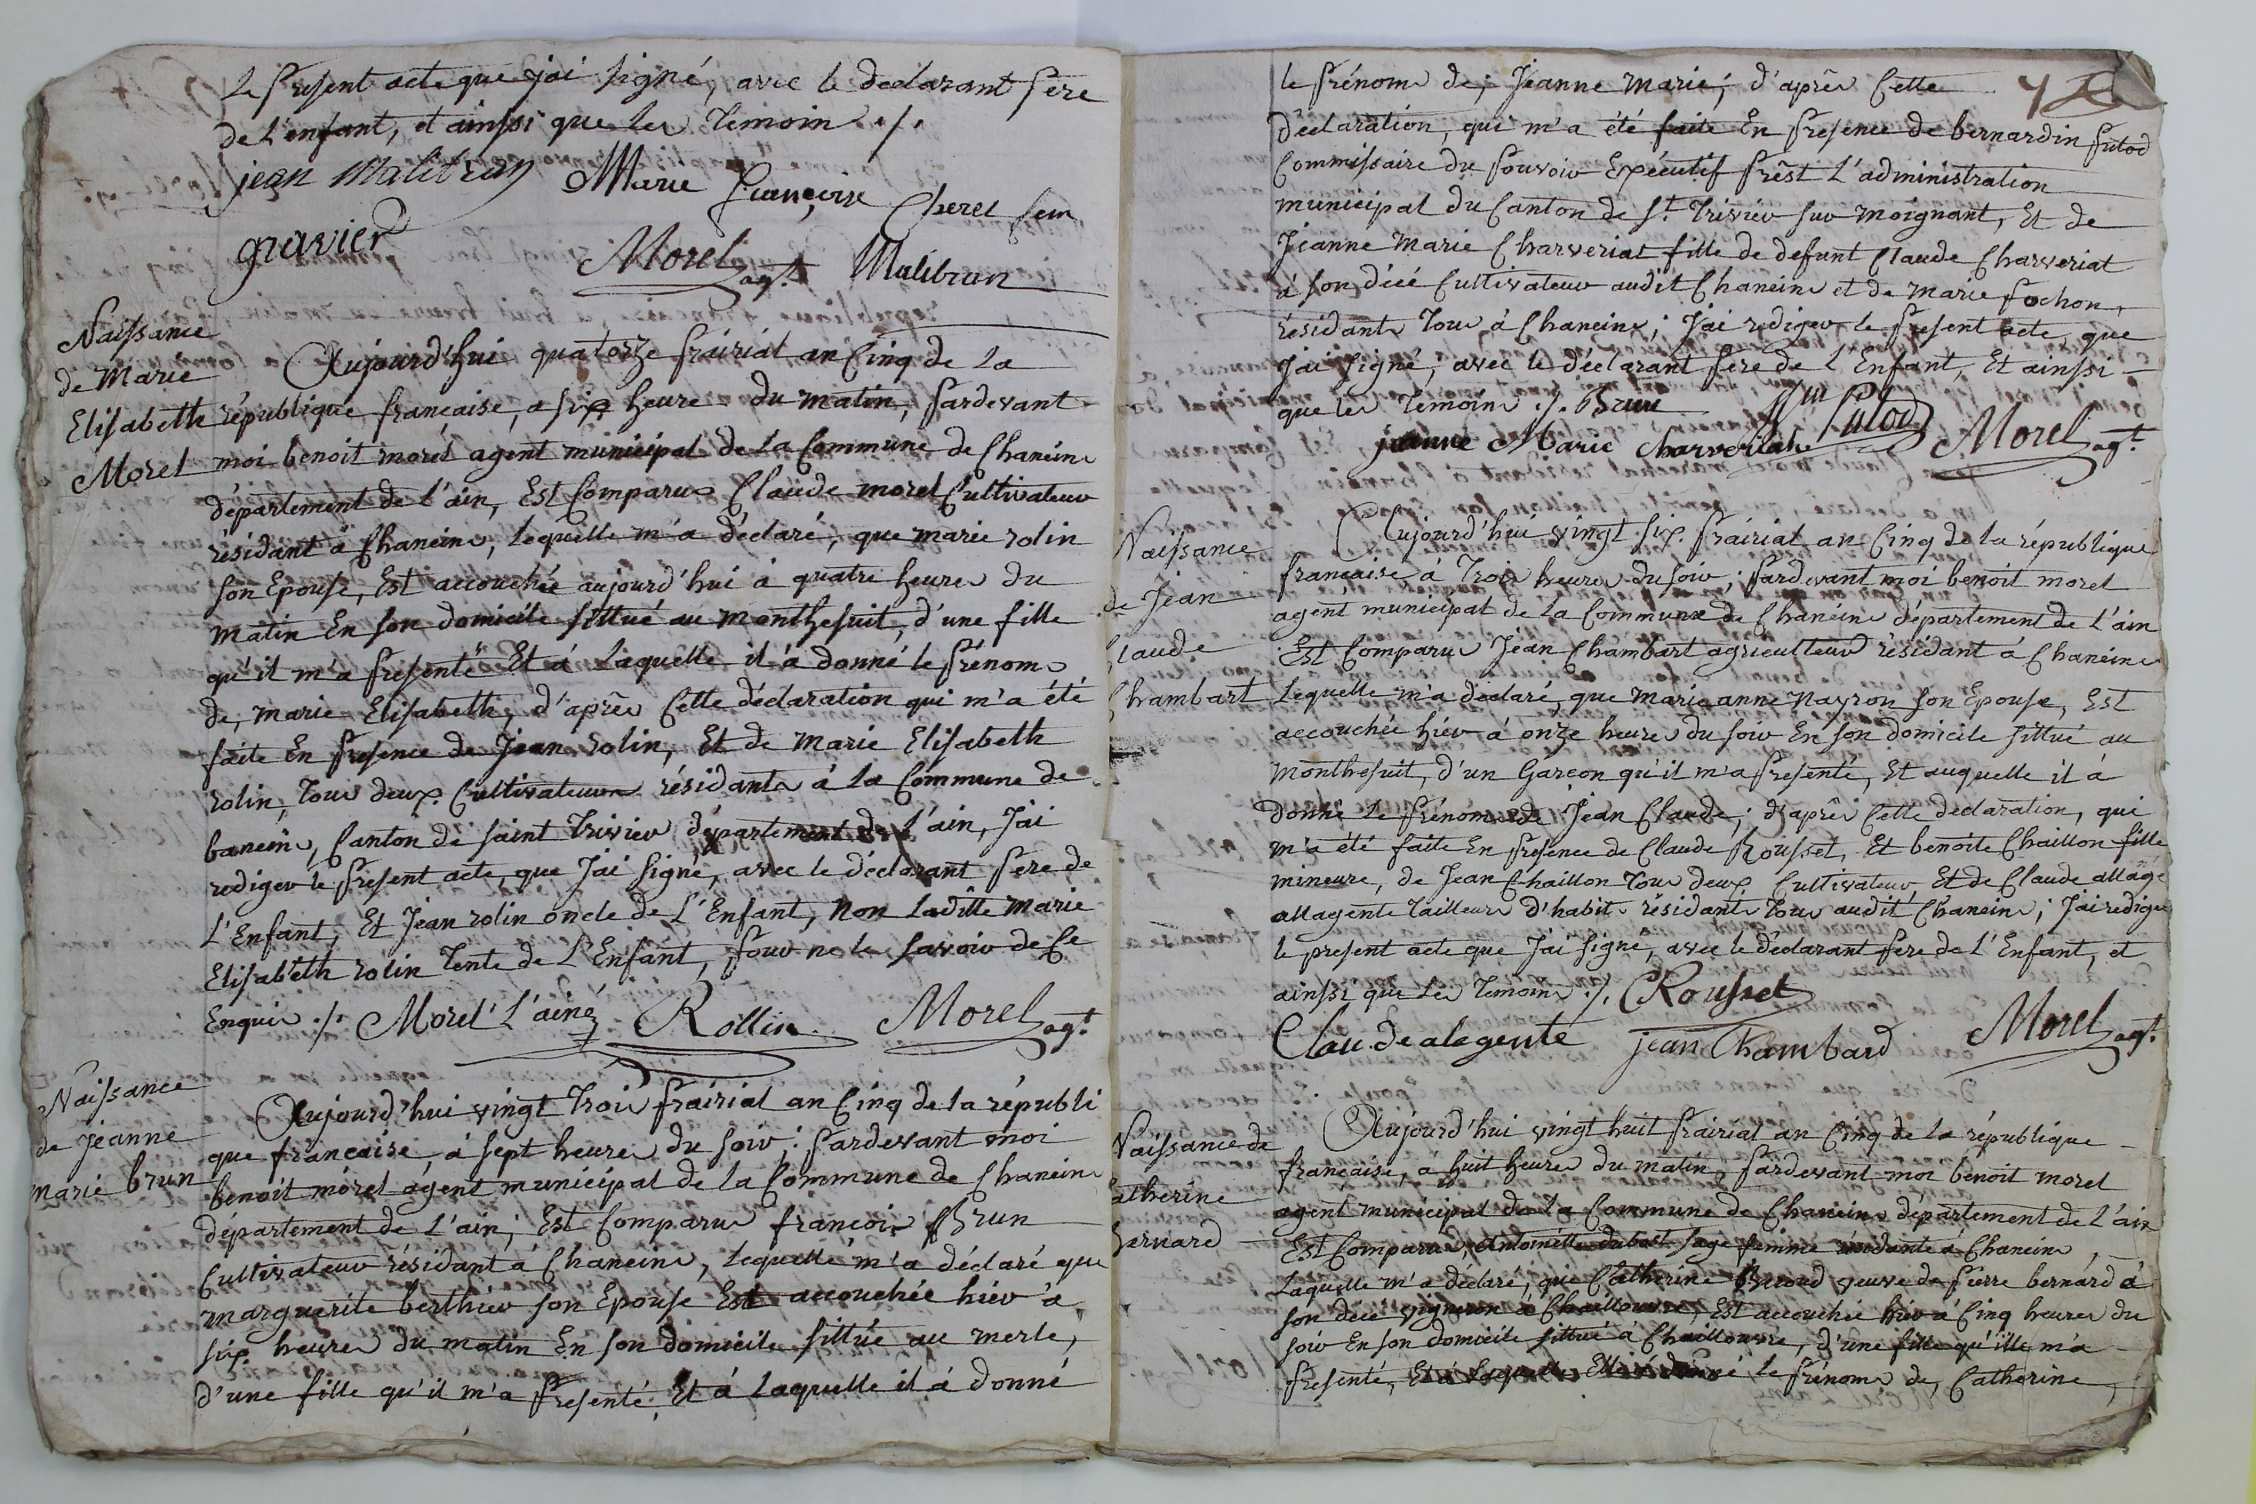 Le present acte que j'ai signé, avec le declarant pere
de l'enfant, et ainssi que les temoin ./.
jean Malibran Marie françoise Cheret fem
gravier Morel agt. Malibran
Naissance
de Marie
Elisabeth
Morel
Aujourd'hui quatorze prairial an Cinq de la
république française, a six heure du matin, pardevant
moi benoit morel agent municipal de la Commune de Chaneins
département de l'ain, Est Comparus Claude morel Cultivateur
résidant à Chaneins, Lequelle m'a déclaré, que marie rolin
son Epouse, Est accouchée aujourd'hui à quatre heures du
matin En son domicile sittué au monthesuit, d'une fille
qu'il m'a presenté Et á Laquelle il à donné le prénoms
de, marie Elisabeth, d'après Cette déclaration qui m'a été
faite En presence de Jean rolin, Et de marie Elisabeth
rolin, tous deux Cultivateurs résidants à la Commune de
baneins, Canton de saint trivier département de l'ain, J'ai
rediger le present acte, que J'ai signé, avec le déclarant pere de
L'Enfant, Et Jean rolin oncle de L'Enfant, non Laditte marie
Elisabeth rolin tente de L'Enfant, pour ne le savoir de Ce
Enquis ./. Morel l'ainé Rollin Morel agt.
Naissance
de Jeanne
marie brun
Aujourd'hui vingt trois prairial an Cinq de la républi
que française, á sept heures du soir; pardevant moi
benoit morel agent municipal de la Commune de Chaneins
département de L'ain; Est Comparus françois Brun
Cultivateur résidant á Chaneins, Lequelle m'a déclaré que
marguerite berthier son Epouse Est accouchée hier à
six heures du matin En son domicile sittué au merle,
d'une fille qu'il m'a presenté, Et á Laquelle il á donné
le prénoms de, Jeanne Marie; d'après Cette
déclaration, qui m'a été faite En presence de bernardin putod
Commissaire du pouvoir Expécutif prêst L'administration
municipal du Canton de St. trivier sur moignant, Et de
Jeanne Marie Charveriat fille de defunt Claude Charveriat
á son décé Cultivateur audit Chaneins et de Marie pochon,
résidants tous á Chaneins; J'ai rediger le present acte, que
J'ai signé, avec le déclarant pere de L'Enfant, Et ainssi
que les temoins ./. Brun Putod
jeanne Marie charveriat Morel agt.
Naissance
de Jean
Claude
Chambart
Aujourd'hui vingt six prairial an Cinq de la république
française, à trois heures du soir; pardevant moi benoit morel
agent municipal de la Commune de Chaneins département de L'ain
Est Comparus Jean Chambart agriculteur résidant á Chaneins
Lequelle m'a déclaré, que marie anne nayron son Epouse, Est
accouchée hier à onze heures du soir En son domicile sittué au
monthesuit, d'un Garçon qu'il m'a presenté, Et auquelle il à
donné Le prénoms de Jean Claude; d'après Cette declaration, qui
m'a été faite En presence de Claude Rousset, Et benoite Chaillon fille
mineure, de Jean Chaillon tous deux Cultivateur, Et de Claude allage
allagente tailleur d'habit résidants tous audit Chaneins; J'ai rediger
le present acte que J'ai signé, avec le déclarant pere de L'Enfant, et
ainssi que Les temoins ./. CRousset
Claude alagente jean Chambard Morel agt.
Naissance de
Catherine
bernard
Aujourd'hui vingt huit prairial an Cinq de la république
française, á huit heures du matin, pardevant moi benoit morel
agent municipal de la Commune de Chaneins département de L'ain
Est Comparus, Antoinette dubost sage femme résidante á Chaneins,
Laquelle m'a déclaré, que Catherine veuve de pierre bernard á
son décé vigneron á Chaillouvre, Est accouchée hier á Cinq heures du
soir En son domicile sittué á Chaillouvre, d'une fille qu'ille m'a
presenté, Et á Laquelle Elle à donné le prénoms de, Catherine,